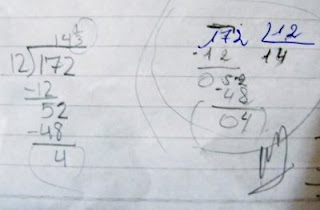 14 1/3
12)172
-12
52
-48
4
172 12
-12 14
052
-48
04